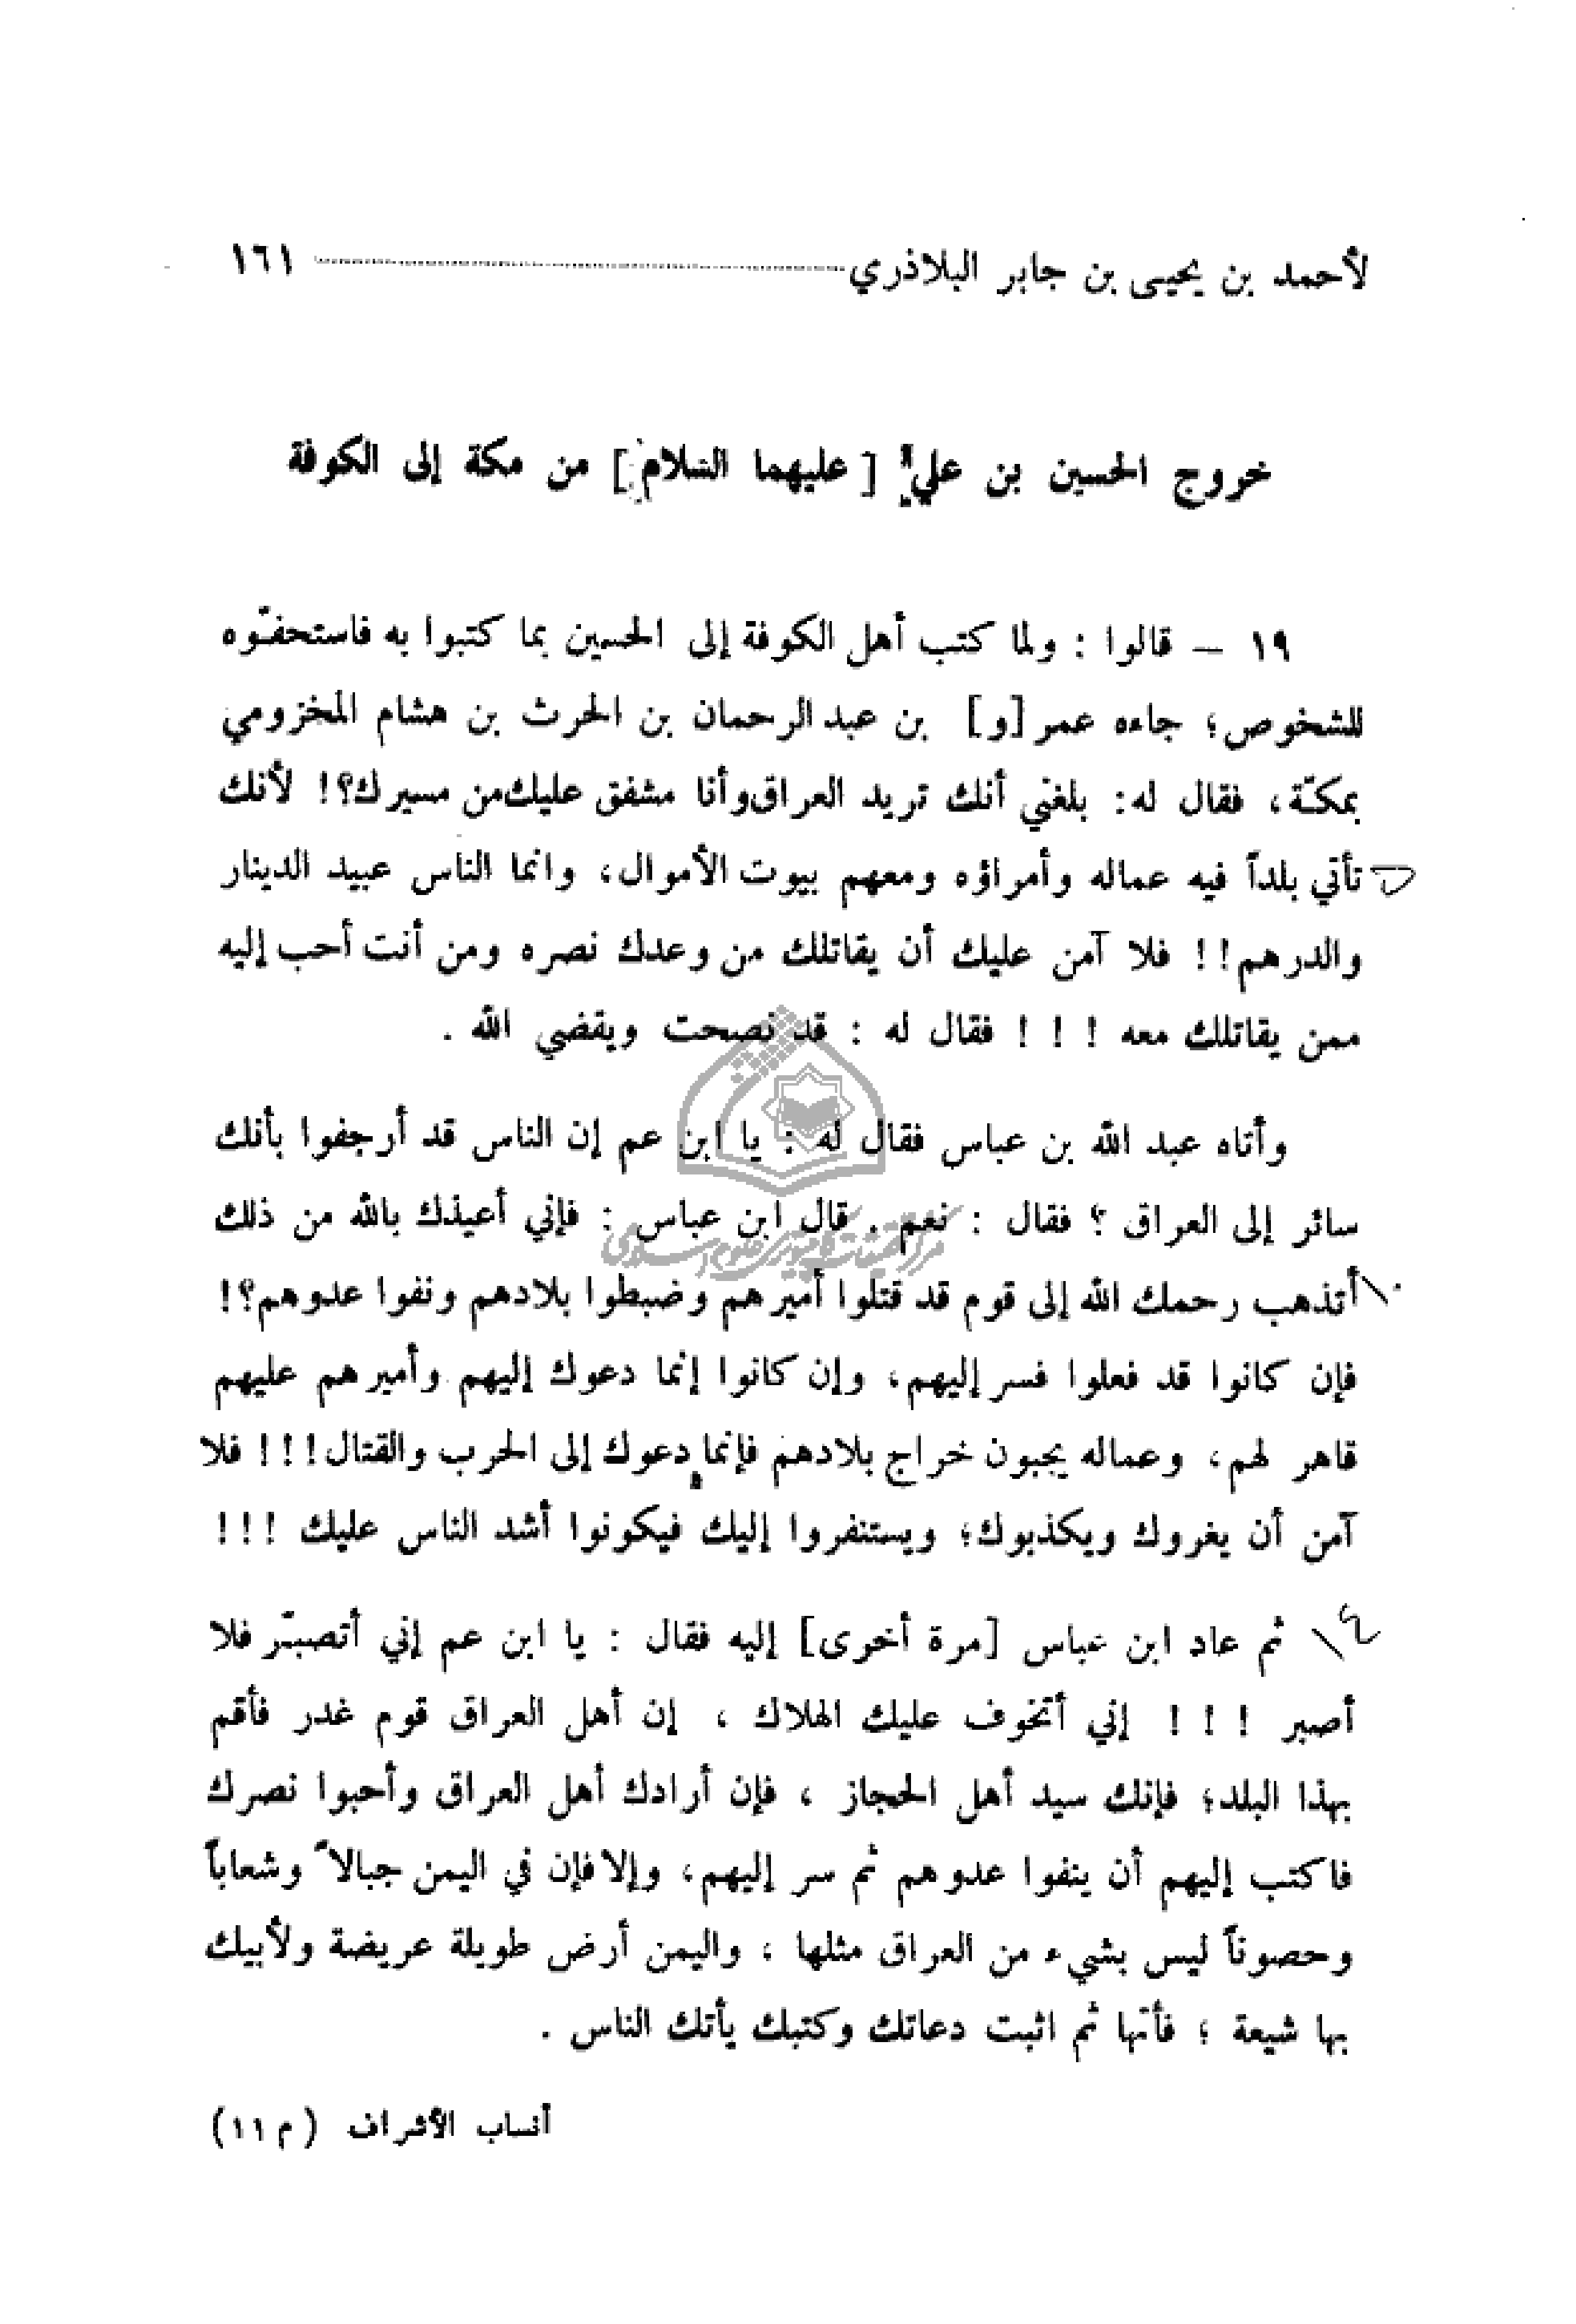 لأحمد بن يحيى بن جابر البلاذري ١٦١
خروج الحسين بن علي [ عليهما السلام ] من مكة إلى الكوفة
١٩ – قالوا : ولما كتب أهل الكوفة إلى الحسين بما كتبوا به فاستحفّوه
للشخوص؛ جاءه عمر [و] بن عبد الرحمان بن الحرث بن هشام المخزومي
بمكّة، فقال له: بلغني أنك تريد العراق وأنا مشفق عليك من مسيرك؟! لأنك
تأتي بلداً فيه عماله وأمراؤه ومعهم بيوت الأموال، وانما الناس عبيد الدينار
والدرهم!! فلا آمن عليك أن يقاتلك من وعدك نصره ومن أنت أحب إليه
ممن يقاتلك معه ! ! ! فقال له : قد نصحت ويقضي الله .
وأتاه عبد الله بن عباس فقال له : يا ابن عم إن الناس قد أرجفوا بأنك
سائر إلى العراق ؟ فقال : نعم . قال ابن عباس : فإني أعيذك بالله من ذلك
١٠ أتذهب رحمك الله إلى قوم قد قتلوا أميرهم وضبطوا بلادهم ونفوا عدوهم؟!
فإن كانوا قد فعلوا فسر إليهم، وإن كانوا إنما دعوك إليهم وأميرهم عليهم
قاهر لهم، وعماله يجبون خراج بلادهم فإنما دعوك إلى الحرب والقتال!!! فلا
آمن أن يغروك ويكذبوك؛ ويستنفروا إليك فيكونوا أشد الناس عليك !!!
١٤ ثم عاد ابن عباس [مرة أخرى] إليه فقال : يا ابن عم إني أتصبّر فلا
أصبر ! ! ! إني أتخوف عليك الهلاك ، إن أهل العراق قوم غدر فأقم
بهذا البلد؛ فإنك سيد أهل الحجاز ، فإن أرادك أهل العراق وأحبوا نصرك
فاكتب إليهم أن ينفوا عدوهم ثم سر إليهم، وإلا فإن في اليمن جبالاً وشعاباً
وحصوناً ليس بشيء من العراق مثلها ؛ واليمن أرض طويلة عريضة ولأبيك
بها شيعة ؛ فأتها ثم اثبت دعاتك وكتبك يأتك الناس .
أنساب الأشراف ( م ١١)